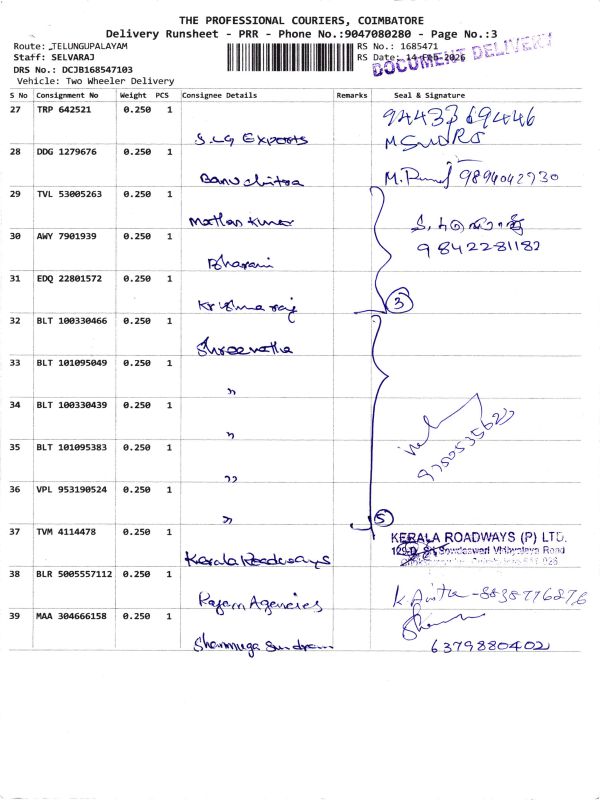 THE PROFESSIONAL COURIERS, COIMBATORE
Delivery Runsheet - PRR - Phone No.:9047080280 - Page No.:3
Route: ,TELUNGUPALAYAM
RS No.: 1685471
Staff: SELVARAJ
RS Date: 14-Feb-2026
DOCUMENT DELIVERY
DRS No.: DCJB168547103
Vehicle: Two Wheeler Delivery
S No Consignment No Weight PCS Consignee Details Remarks Seal & Signature
27 TRP 642521 0.250 1
S.L.G Exports
28 DDG 1279676 0.250 1
Banuchitra 9894042730
29 TVL 53005263 0.250 1
Mathan Kumar
30 AWY 7901939 0.250 1 9842281182
Bharani
31 EDQ 22801572 0.250 1
Krishna raj 3
32 BLT 100330466 0.250 1
Shreevatha
33 BLT 101095049 0.250 1
"
34 BLT 100330439 0.250 1
"
35 BLT 101095383 0.250 1
"
36 VPL 953190524 0.250 1
" 5
37 TVM 4114478 0.250 1 KERALA ROADWAYS (P) LTD.
Kerala Roadways
38 BLR 5005557112 0.250 1
Rajam Agencies
39 MAA 304666158 0.250 1
Shanmuga Sundram 6379880402